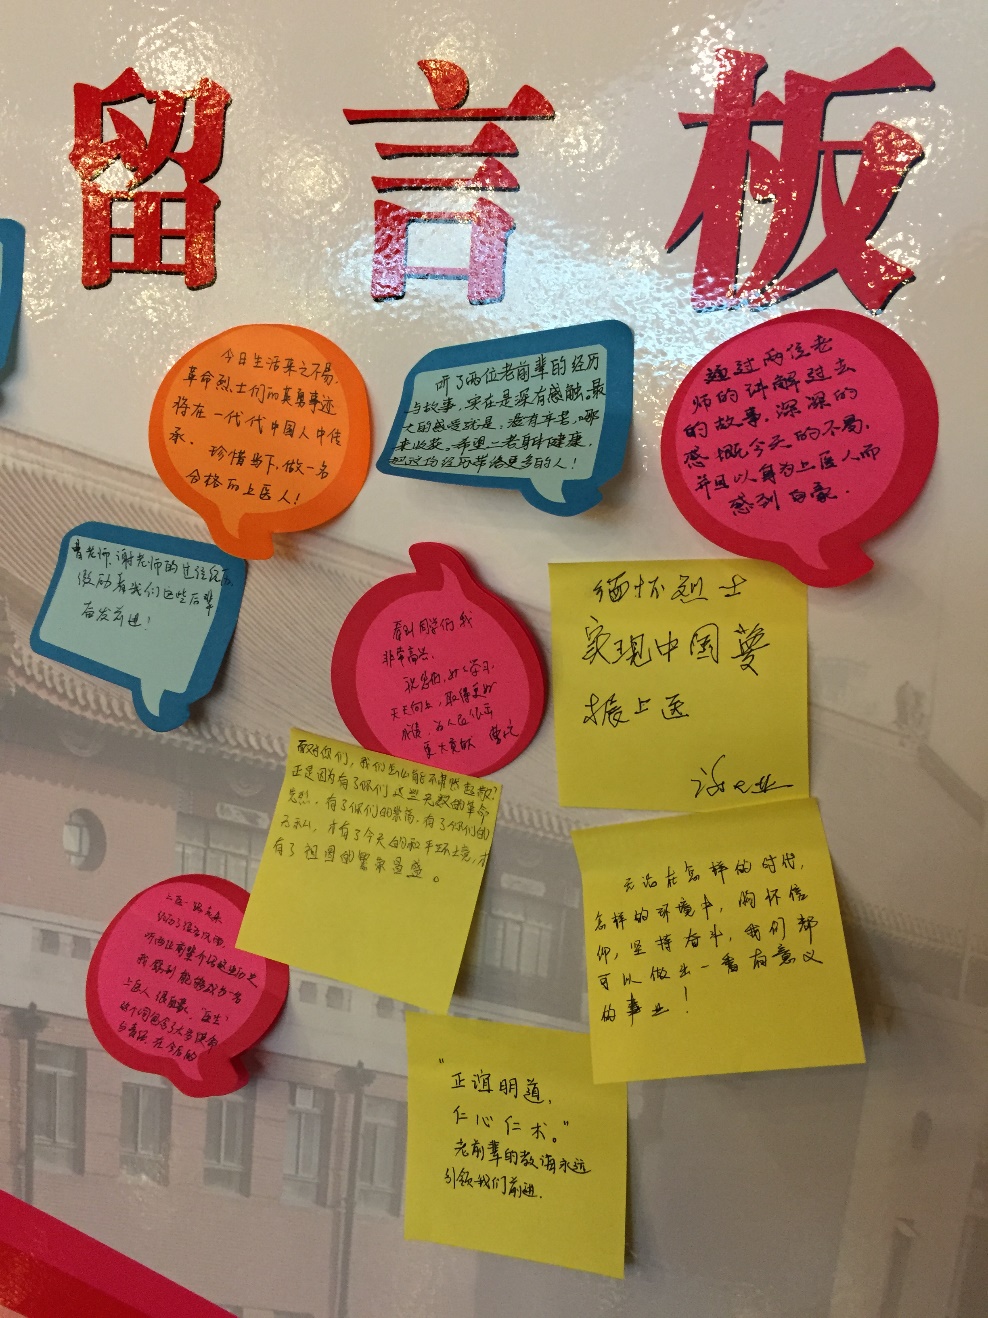 留言板
今日生活来之不易,
革命烈士们的英勇事迹
将在一代代中国人中传
承. 珍惜当下,做一名
合格的上医人!
听了两位老前辈的经历
与故事,实在是深有感触,最
大的感受就是:没有辛苦,哪
来收获。希望二老身体健康,
把这份经历带给更多的人!
通过两位老
师的讲解过去
的故事,深深的
感慨今天的不易,
并且以身为上医人而
感到自豪.
曹老师、谢老师的过往经历,
激励着我们这些后辈
奋发前进!
看到同学们我
非常高兴,
祝你们,好好学习,
天天向上,取得更好
成绩,为人民作出
更大贡献
缅怀烈士
实现中国梦
振上医
面对你们,我们怎么能不肃然起敬?
正是因为有了你们这些无数的革命
先烈,有了你们的崇高,有了你们的
无私,才有了今天的和平环境,才
有了祖国的繁荣昌盛。
无论在怎样的时代,
怎样的环境中,胸怀信
仰,坚持奋斗,我们都
可以做出一番有意义
的事业!
上医一路走来
经历了很多风雨,
听两位前辈介绍这些历史
我 能够成为一名
上医人很自豪。"医生"
这个词包含了太多使命
与责任,在今后的
"正谊明道,
仁心仁术。"
老前辈的教诲永远
引领我们前进.